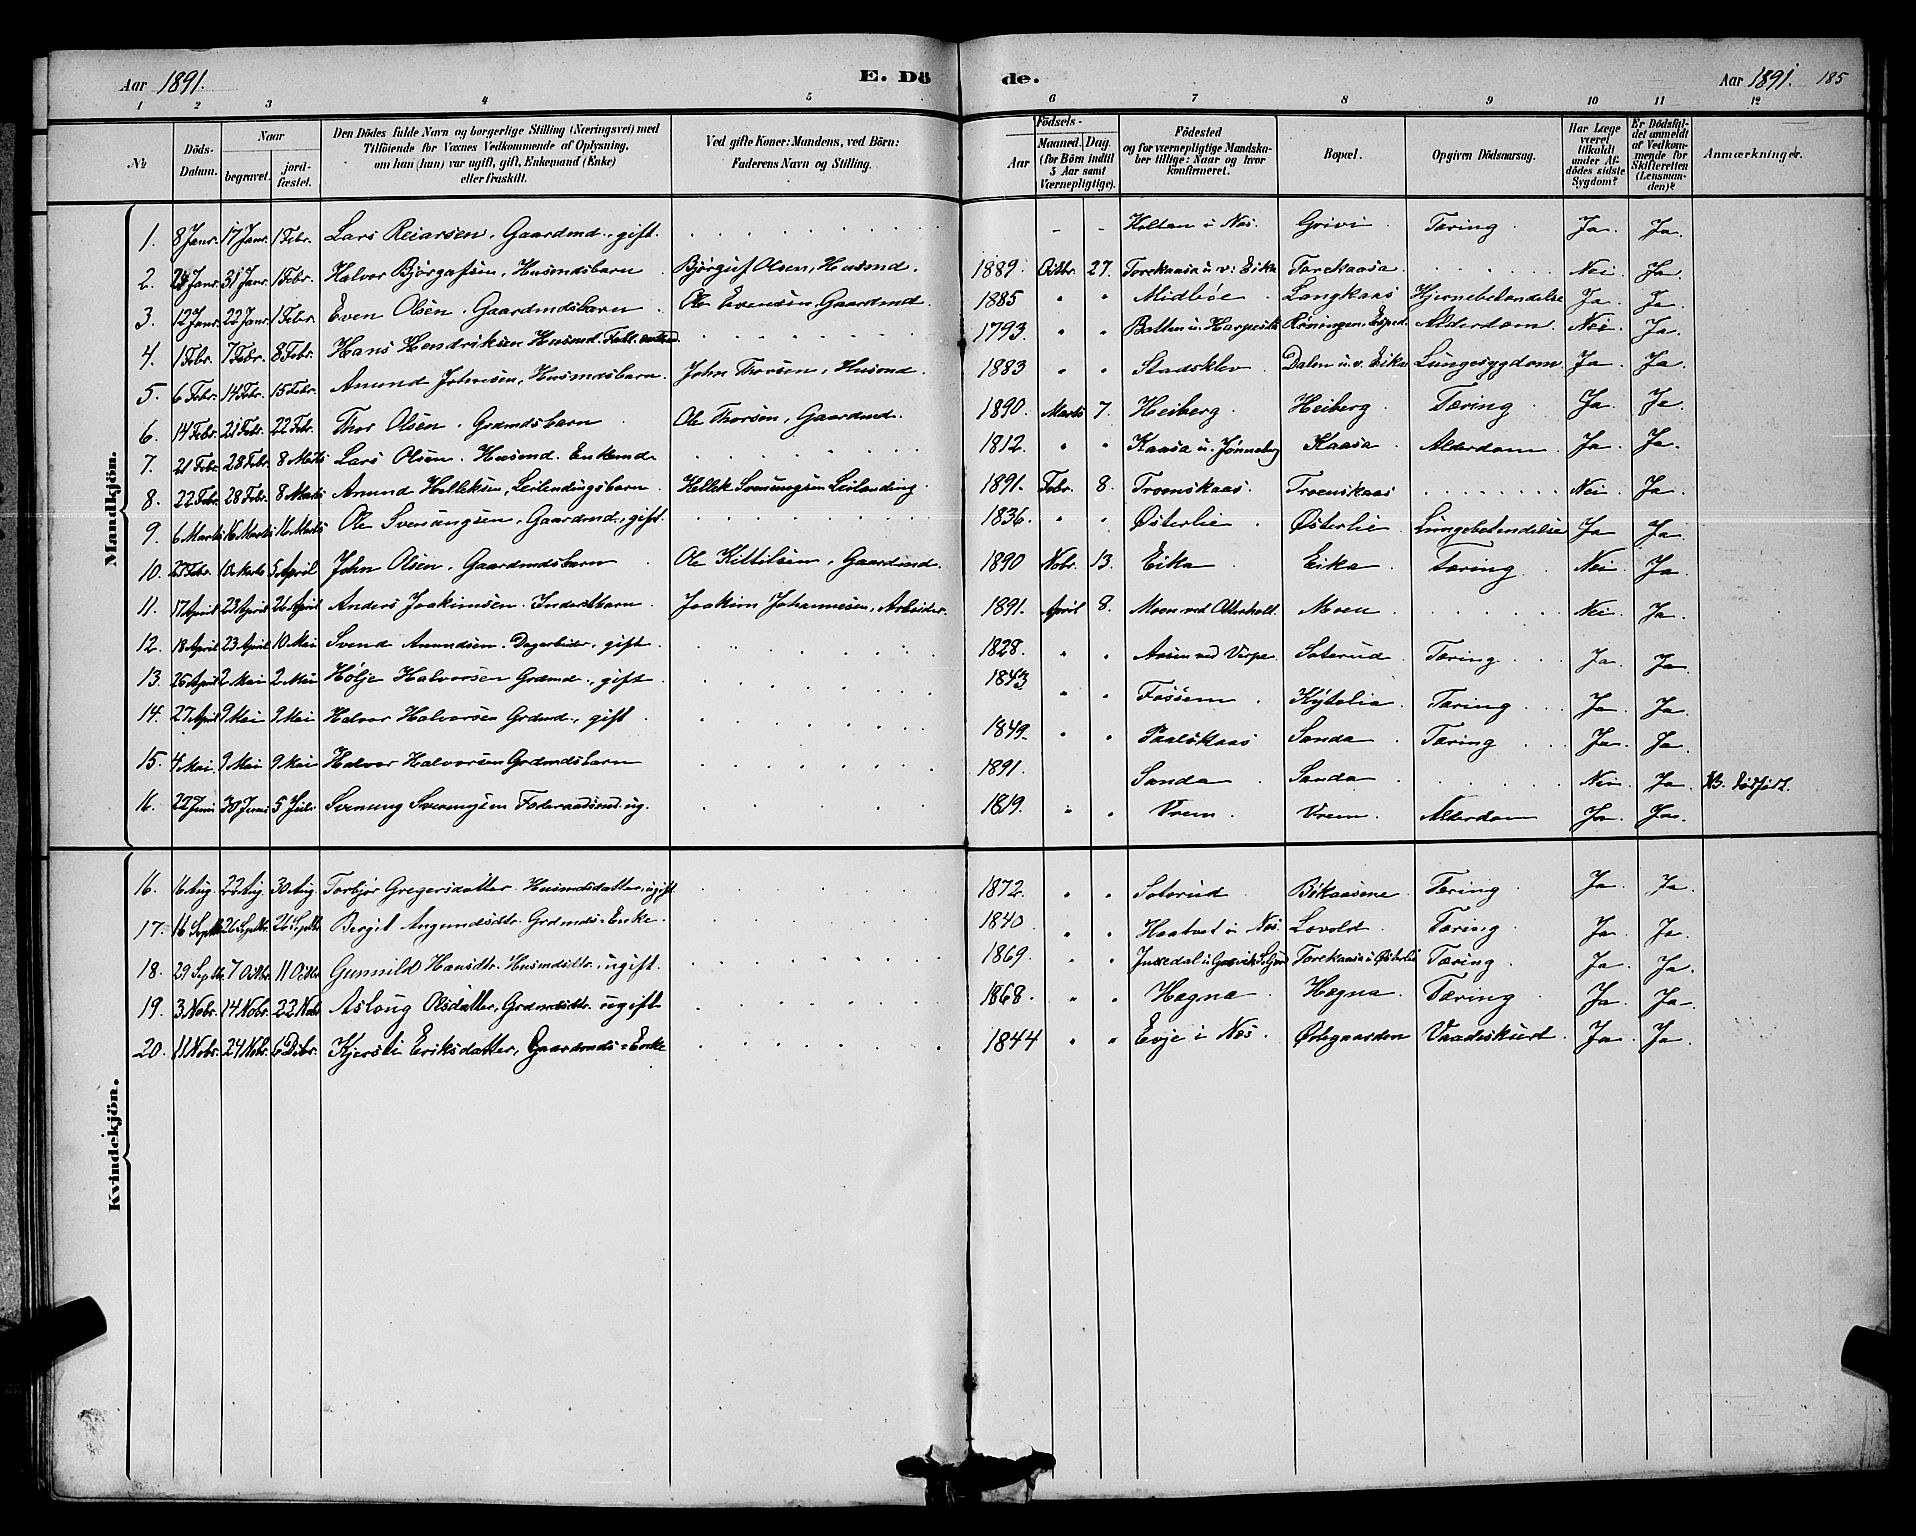 Aar 1891. E. Dö de. Aar 1891. 185
1 2 3 4 5 6 7 8 9 10 11 12
№ Döds-Datum. Naar begravet. jordfæstet. Den Dödes fulde Navn og borgerlige Stilling (Næringsvei) med Tilföiende for Voxnes Vedkommende af Oplysning, om han (hun) var ugift, gift, Enkemand (Enke) eller fraskilt. Ved gifte Koner: Mandens, ved Börn: Faderens Navn og Stilling. Födsels- Aar Maaned. Dag. (for Börn indtil 5 Aar samt Værnepligtige). Födested og for værnepligtige Mandskaber tillige: Naar og hvor konfirmeret. Bopæl. Opgiven Dödsaarsag. Har Læge været tilkaldt under Afdödes sidste Sygdom? Er Dödsfaldet anmeldt af Vedkommende for Skifteretten (Lensmanden)? Anmærkninger.
Mandkjön.
1. 8 Janr. 17 Janr. 1 Febr. Lars Reiarsen, Gaardmd., gift. - - Holtan i Nes. Grivi Tæring Ja. Ja.
2. 24 Janr. 31 Janr. 1 Febr. Halvor Bjørgufsen, Husmdsbarn Bjørguf Olsen, Husmd. 1889. Octbr. 27. Torekaasa u. v. Eika Torekaasa Nei Ja.
3. 12 Janr. 22 Janr. 1 Febr. Even Olsen, Gaardmdsbarn Ole Evensen, Gaardmd. 1885 " " Midbøe Langkaas Hjernebetændelse Ja Ja
4. 1 Febr. 7 Febr. 8 Febr. Hans Hendriksen Husmd. 1793. " " Alderdom. Nei Ja.
5. 6 Febr. 14 Febr. 15 Febr. Amund Johnsen, Husmdsbarn. John Thorsen, Husmd. 1883 " " Stadsklev Dalen u. v. Eika Lungesygdom Ja Ja
6. 14 Febr. 21 Febr. 22 Febr. Thor Olsen, Grdmdsbarn Ole Thorsen, Gaardmd. 1890. Marts 7. Heiberg Heiberg Tæring Ja Ja
7. 21 Febr. 28 Febr. 8 Marts Lars Olsen, Husmd. Enkemd. 1812. " " Kaasa u. Jønneberg Kaasa Alderdom Ja Ja.
8. 22 Febr. 28 Febr. 8 Marts Amund Helleksen, Leilendingsbarn Hellek Svenungsen Leilending 1891. Febr. 8. Troenskaas Troenskaas Nei Ja.
9. 6 Marts 16 Marts 16 Marts Ole Svenungsen, Gaardmd., gift. 1836. " " Østerlie Østerlie Lungebetændelse Ja Ja.
10. 27 Febr. 10 Marts 5 April John Olsen, Gaardmdsbarn Ole Kittilsen, Gaardmd. 1890 Nobr. 13. Eika Eika Tæring Nei Ja.
11. 17 April 23 April 26 April Anders Joakimsen, Inderstbarn Joakim Johannesen, Arbeider. 1891. April 8. Moen ved Moen Nei Ja
12. 18 April 23 April 10 Mai Svend Amundsen. Dagarbeider, gift. 1828. " " Aasen ved Verpe Soterud Tæring Ja Ja
13. 26 April 2 Mai 2 Mai Hølje Halvorsen Grdmd., gift 1843 " " Fossem Kytelia Tæring Ja Ja.
14. 27 April 9 Mai 9 Mai Halvor Halvorsen Grdmd., gift 1849. " " Paalskaas Sanda Tæring Ja Ja.
15. 4 Mai. 9 Mai 9 Mai Halvor Halvorsen Grdmdsbarn 1891. Sanda Sanda Nei Ja. NB. Dødfødt.
16. 22 Juni 30 Juni 5 Juli. Svenung Svenungsen Føderaadsmd. ug. 1819. " " Vrem Vrem Alderdom Ja. Ja.
Kvindekjön.
16. 16 Aug. 22 Aug. 30 Aug. Torbjør Gregersdatter Husmdsdatter, ugift 1872. " " Soterud Bekaasene Tæring Ja Ja.
17. 16 Septbr. 26 Septbr. 26 Septbr. Bergit Amundsdtr. Grdmds-Enke. 1840 " " Haatvet i Nes. Lovold Tæring Ja. Ja.
18. 29 Septbr. 7 Octbr. 11 Octbr. Gunnild Hansdtr. Husmdsdtr., ugift. 1869. " " Torekaasa u Østerlie Tæring Ja Ja.
19. 3 Nobr. 14 Nobr. 22 Nobr. Aslaug Olsdatter, Grdmdsdtr. ugift 1868. " " Hægna Hægna Tæring Ja. Ja.
20. 11 Nobr. 24 Nobr. 6 Debr. Kjersti Eriksdatter, Gaardmds-Enke 1844 " " Evje i Nes. Østegaarden Vaadeskudt Ja Ja